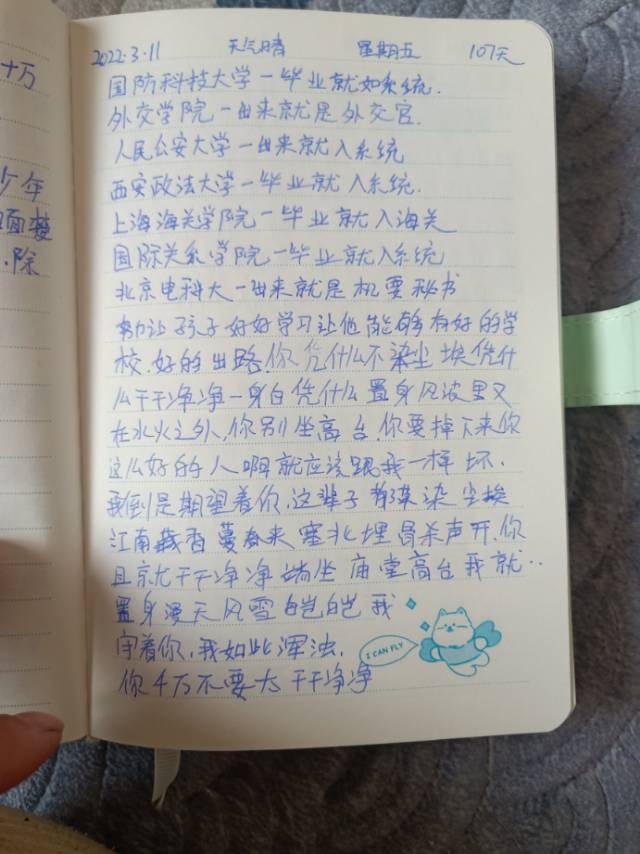 十万
少年
除
2022.3.11 天气晴 星期五 107天
国防科技大学一毕业就如系统.
外交学院一出来就是外交官.
人民公安大学一出来就入系统
西安政法大学一毕业就入系统.
上海海关学院一毕业就入海关
国际关系学院一毕业就入系统
北京电科大一出来就是机要秘书
让孩子好好学习让他能够有好的学
校.好的出路你凭什么不染尘埃凭什
么干干净净一身白凭什么置身风波里又
在水火之外,你别坐高台,你要掉下来你
这么好的人啊就应该跟我一样坏.
我倒是期望着你,这辈子都莫染尘埃
江南藏香蔓春来塞北埋骨杀声开,你
且就干干净净端坐庙堂高台我就..
置身漫天风雪皑皑我
守着你,我如此浑浊,
你千万不要太干干净净
I CAN FLY